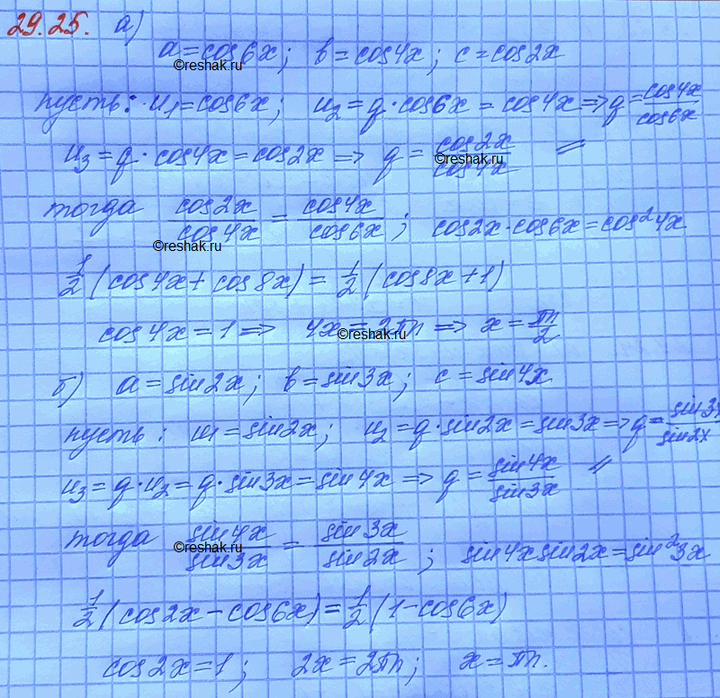 29.25. а)
a = cos6x; b = cos4x; c = cos2x
©reshak.ru
пусть: u₁ = cos6x; u₂ = q·cos6x = cos4x ⇒ q = cos4x/cos6x
u₃ = q·cos4x = cos2x ⇒ q = cos2x/cos4x //
©reshak.ru
тогда cos2x/cos4x = cos4x/cos6x; cos2x·cos6x = cos²4x
©reshak.ru
1/2(cos4x + cos8x) = 1/2(cos8x + 1)
cos4x = 1 ⇒ 4x = 2πn ⇒ x = πn/2
©reshak.ru
б) a = sin2x; b = sin3x; c = sin4x
пусть: u₁ = sin2x; u₂ = q·sin2x = sin3x ⇒ q = sin3x/sin2x
u₃ = q·u₂ = q·sin3x = sin4x ⇒ q = sin4x/sin3x //
тогда sin4x/sin3x = sin3x/sin2x; sin4x sin2x = sin²3x
©reshak.ru
1/2(cos2x − cos6x) = 1/2(1 − cos6x)
cos2x = 1; 2x = 2πn; x = πn.